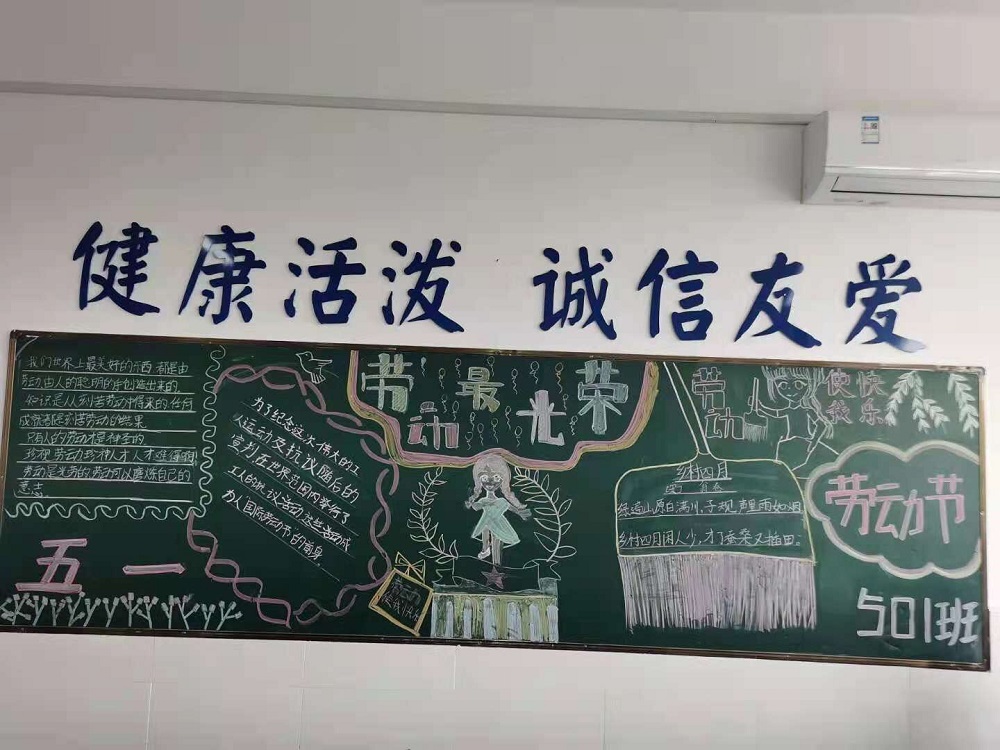 健康活泼 诚信友爱
我们世界上最美好的东西都是由
劳动由人的聪明的手创造出来的
知识是人刻苦劳动中得来的任何
成就都是刻苦劳动的结果
只有人的劳动才是神圣的
珍视劳动珍视人才人才难得
劳动是光荣的劳动可以磨炼自己的
意志
五一
为了纪念这次伟大的工
人运动及抗议随后的
宣判在世界范围内举行了
工人的抗议活动这些活动成
为了国际劳动节的前身
劳动最光荣
劳动
使我快乐
劳动
使快
我乐
乡村四月
绿遍山原白满川,子规声里雨如烟
乡村四月闲人少,才了蚕桑又插田。
劳动节
501班